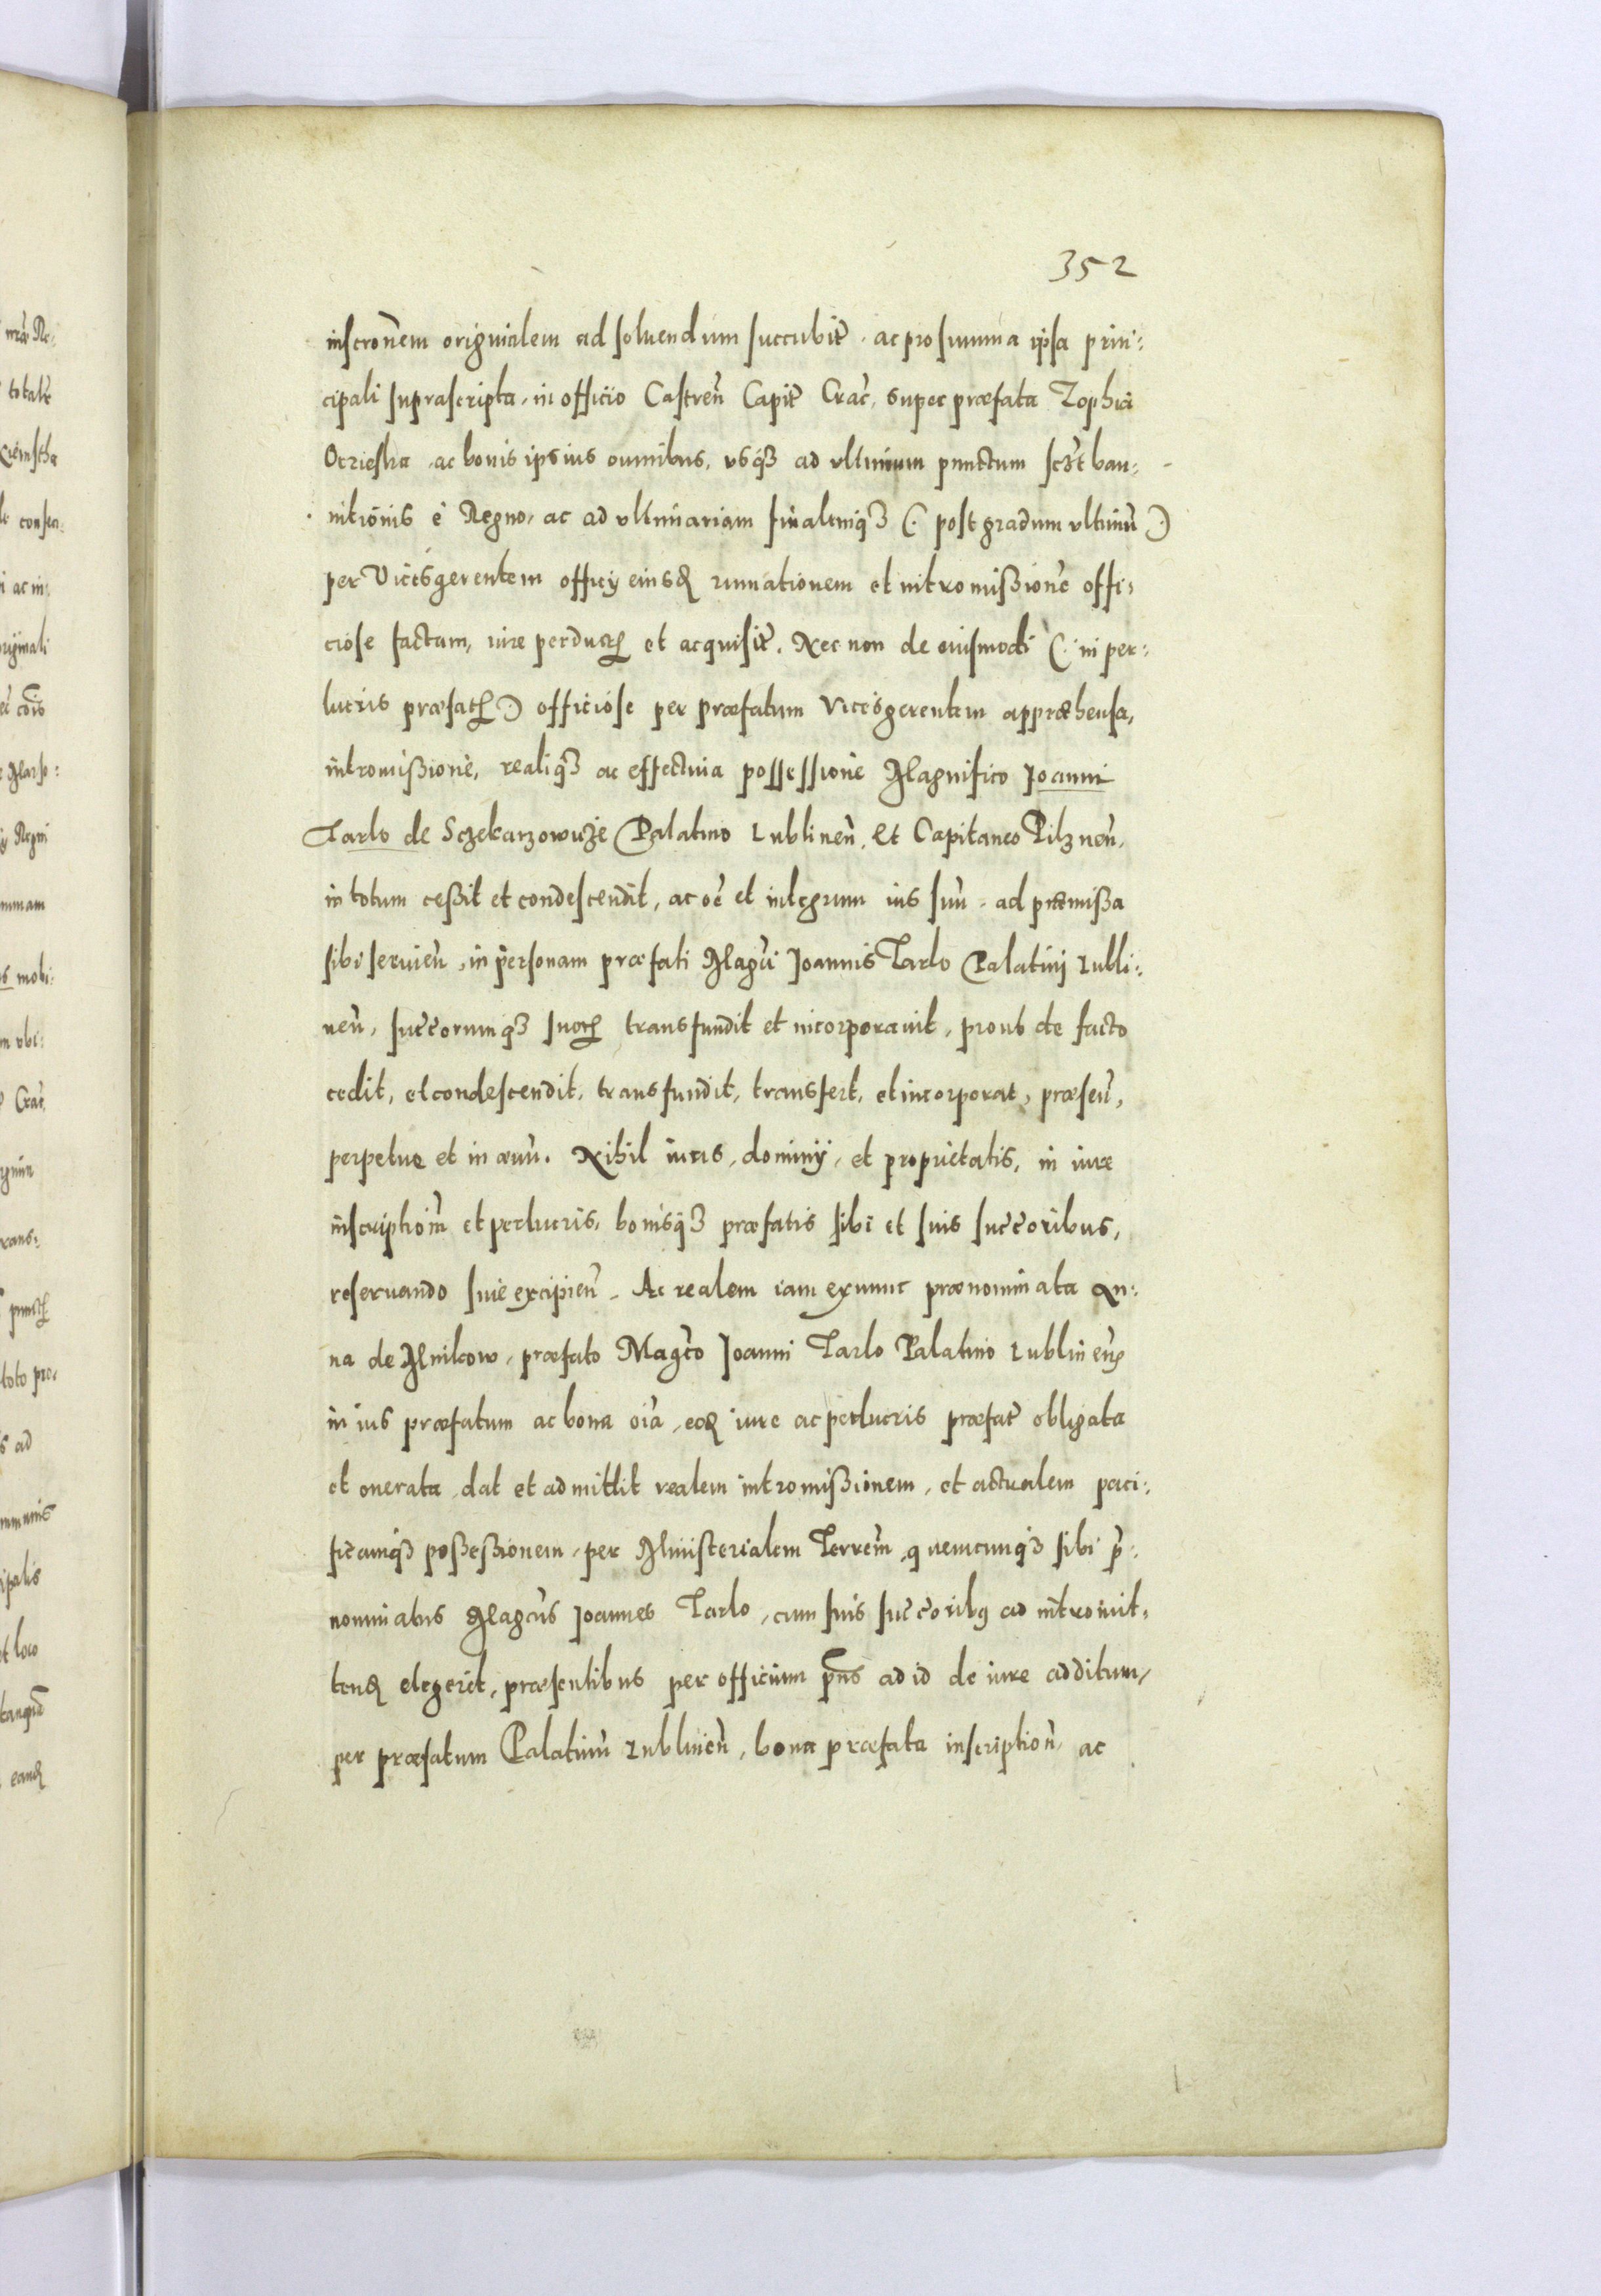 352
inscronem originalem ad soluendum succubit. ac pro summa ipsa prin:
cipali suprascripta, in officio Castren Capit Crac, super præfata Zophia
Ocziesska, ac bonis ipsius omnibus, vsq3 ad vltimum punctum sczt ban:
nitionis è Regno, ac ad vltimariam finalemq3 (: post gradum vltimū :)
per Vicesgerentem officij eiusd ruinationem et intromißionē offi:
ciose factam, iure perduct et acquisit. Nec non de eiusmodi (: in per:
lucris præfat :) officiose per præfatum Vicesgerentem appræhensa,
intromißione, realiq3 ac effectiua possessione Magnifico Joanni
Tarlo de Sczekarzowicze Palatino Lublinen, et Capitaneo Pilznen,
in totum ceßit et condescendit, ac oē et integrum ius suū, ad præmißa
sibi seruien, in personam præfati Magci Joannis Tarlo Palatini Lubli:
nen, succorumq3 suor transfundit et incorporauit, prout de facto
cedit, et condescendit, transfundit, transfert, et incorporat, præsen,
perpetue et in æuū. Nihil iuris, dominij, et proprietatis, in iure
inscriptiom et perlucris, bonisq3 præfatis sibi et suis succoribus,
reseruando siue excipien. Ac realem iam exnunc prænominata An:
na de Mnikow, præfato Magco Joanni Tarlo Palatino Lublinen
in ius præfatum ac bona oia, eod iure ac perlucris præfat obligata
et onerata, dat et admittit realem intromißionem, et actualem paci:
ficamq3 poßeßionem, per Ministerialem Terrem, quemcunq3 sibi p:
nominatus Magcus Joannes Tarlo, cum suis succoribus ad intromit:
tend elegerit, præsentibus per officium pns ad id de iure additum,
per præfatum Palatinū Lublinen, bona præfata inscription, ac